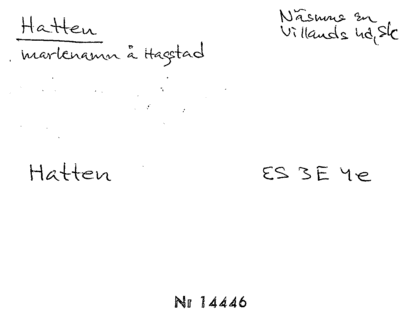 Hatten
marknamn å Hagstad
Näsums sn
Villands hd, Sk
Hatten
ES 3E 4e
Nr 14446